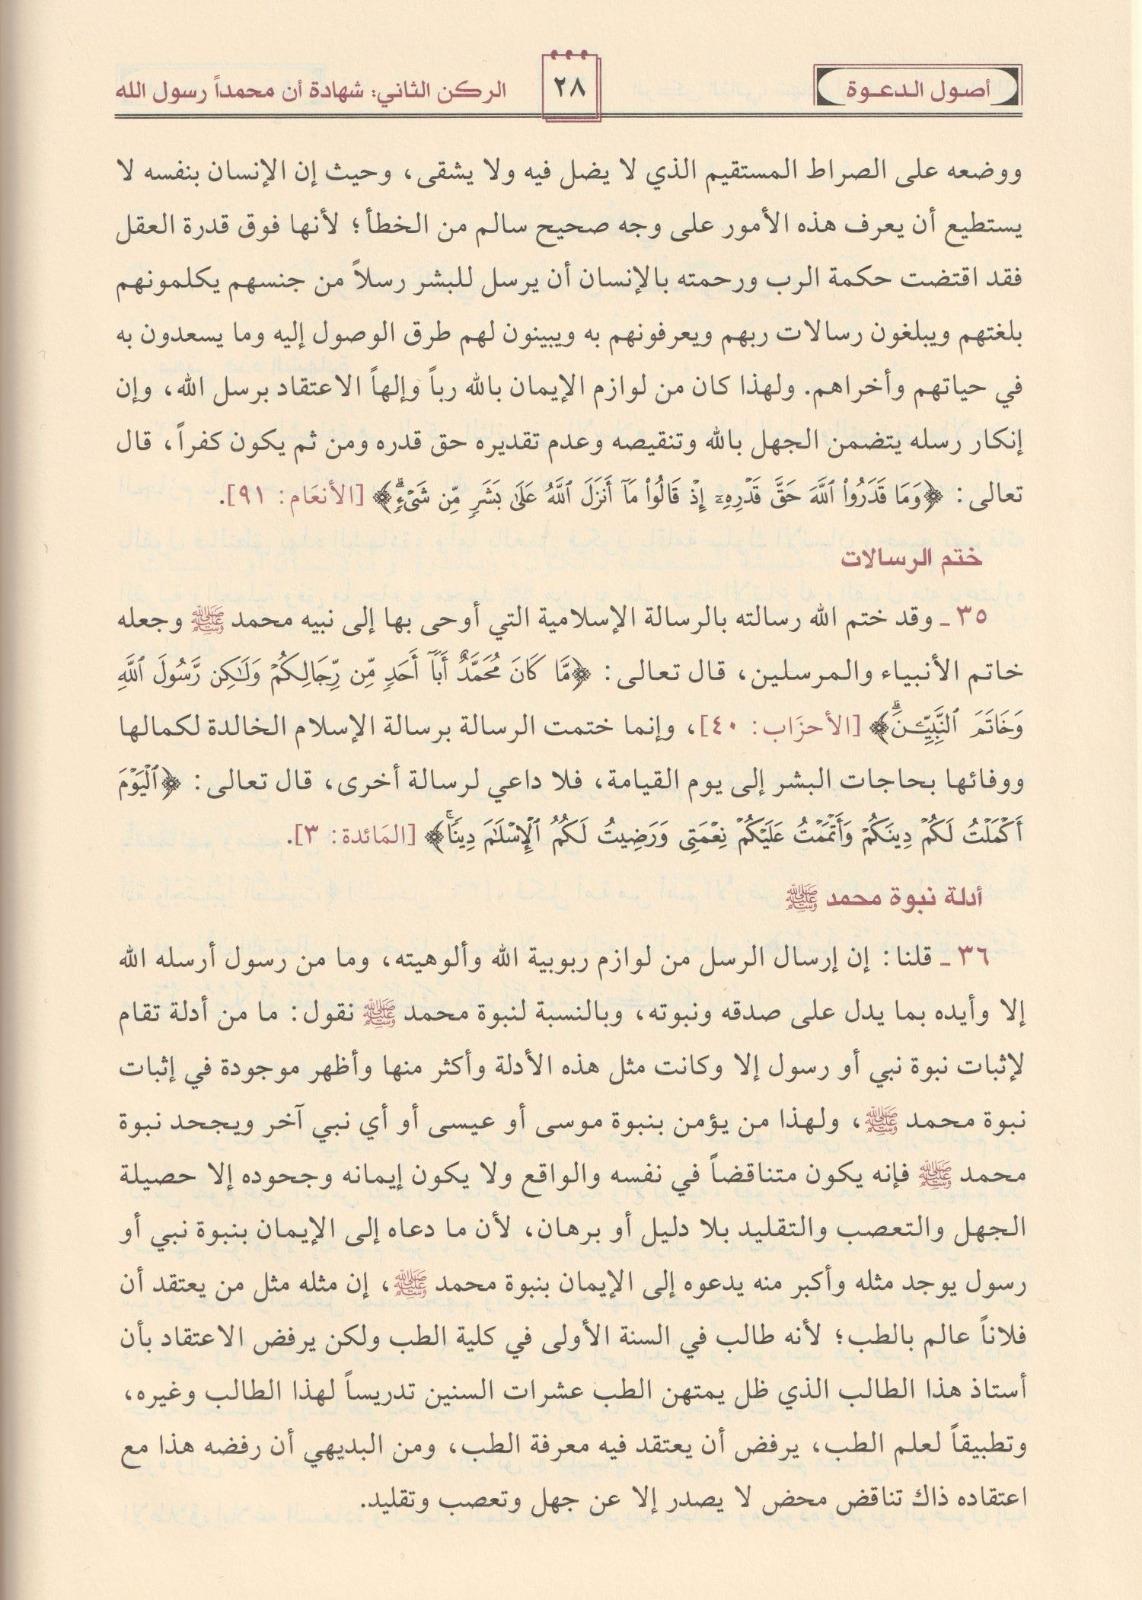 أصول الدعوة
٢٨
الركن الثاني: شهادة أن محمداً رسول الله
ووضعه على الصراط المستقيم الذي لا يضل فيه ولا يشقى، وحيث إن الإنسان بنفسه لا
يستطيع أن يعرف هذه الأمور على وجه صحيح سالم من الخطأ؛ لأنها فوق قدرة العقل
فقد اقتضت حكمة الرب ورحمته بالإنسان أن يرسل للبشر رسلاً من جنسهم يكلمونهم
بلغتهم ويبلغون رسالات ربهم ويعرفونهم به ويبينون لهم طرق الوصول إليه وما يسعدون به
في حياتهم وأخراهم. ولهذا كان من لوازم الإيمان بالله رباً وإلهاً الاعتقاد برسل الله، وإن
إنكار رسله يتضمن الجهل بالله وتنقيصه وعدم تقديره حق قدره ومن ثم يكون كفراً، قال
تعالى: ﴿وَمَا قَدَرُوا۟ ٱللَّهَ حَقَّ قَدْرِهِۦٓ إِذْ قَالُوا۟ مَآ أَنزَلَ ٱللَّهُ عَلَىٰ بَشَرٍ مِّن شَىْءٍ ۗ﴾ [الأنعَام: ٩١].
ختم الرسالات
٣٥ ـ وقد ختم الله رسالته بالرسالة الإسلامية التي أوحى بها إلى نبيه محمد ﷺ وجعله
خاتم الأنبياء والمرسلين، قال تعالى: ﴿مَّا كَانَ مُحَمَّدٌ أَبَآ أَحَدٍ مِّن رِّجَالِكُمْ وَلَٰكِن رَّسُولَ ٱللَّهِ
وَخَاتَمَ ٱلنَّبِيِّـۧنَ ۗ﴾ [الأحزَاب: ٤٠]، وإنما ختمت الرسالة برسالة الإسلام الخالدة لكمالها
ووفائها بحاجات البشر إلى يوم القيامة، فلا داعي لرسالة أخرى، قال تعالى: ﴿ٱلْيَوْمَ
أَكْمَلْتُ لَكُمْ دِينَكُمْ وَأَتْمَمْتُ عَلَيْكُمْ نِعْمَتِى وَرَضِيتُ لَكُمُ ٱلْإِسْلَٰمَ دِينًا ۚ﴾ [المَائدة: ٣].
أدلة نبوة محمد ﷺ
٣٦ ـ قلنا: إن إرسال الرسل من لوازم ربوبية الله وألوهيته، وما من رسول أرسله الله
إلا وأيده بما يدل على صدقه ونبوته، وبالنسبة لنبوة محمد ﷺ نقول: ما من أدلة تقام
لإثبات نبوة نبي أو رسول إلا وكانت مثل هذه الأدلة وأكثر منها وأظهر موجودة في إثبات
نبوة محمد ﷺ، ولهذا من يؤمن بنبوة موسى أو عيسى أو أي نبي آخر ويجحد نبوة
محمد ﷺ فإنه يكون متناقضاً في نفسه والواقع ولا يكون إيمانه وجحوده إلا حصيلة
الجهل والتعصب والتقليد بلا دليل أو برهان، لأن ما دعاه إلى الإيمان بنبوة نبي أو
رسول يوجد مثله وأكبر منه يدعوه إلى الإيمان بنبوة محمد ﷺ، إن مثله مثل من يعتقد أن
فلاناً عالم بالطب؛ لأنه طالب في السنة الأولى في كلية الطب ولكن يرفض الاعتقاد بأن
أستاذ هذا الطالب الذي ظل يمتهن الطب عشرات السنين تدريساً لهذا الطالب وغيره،
وتطبيقاً لعلم الطب، يرفض أن يعتقد فيه معرفة الطب، ومن البديهي أن رفضه هذا مع
اعتقاده ذاك تناقض محض لا يصدر إلا عن جهل وتعصب وتقليد.